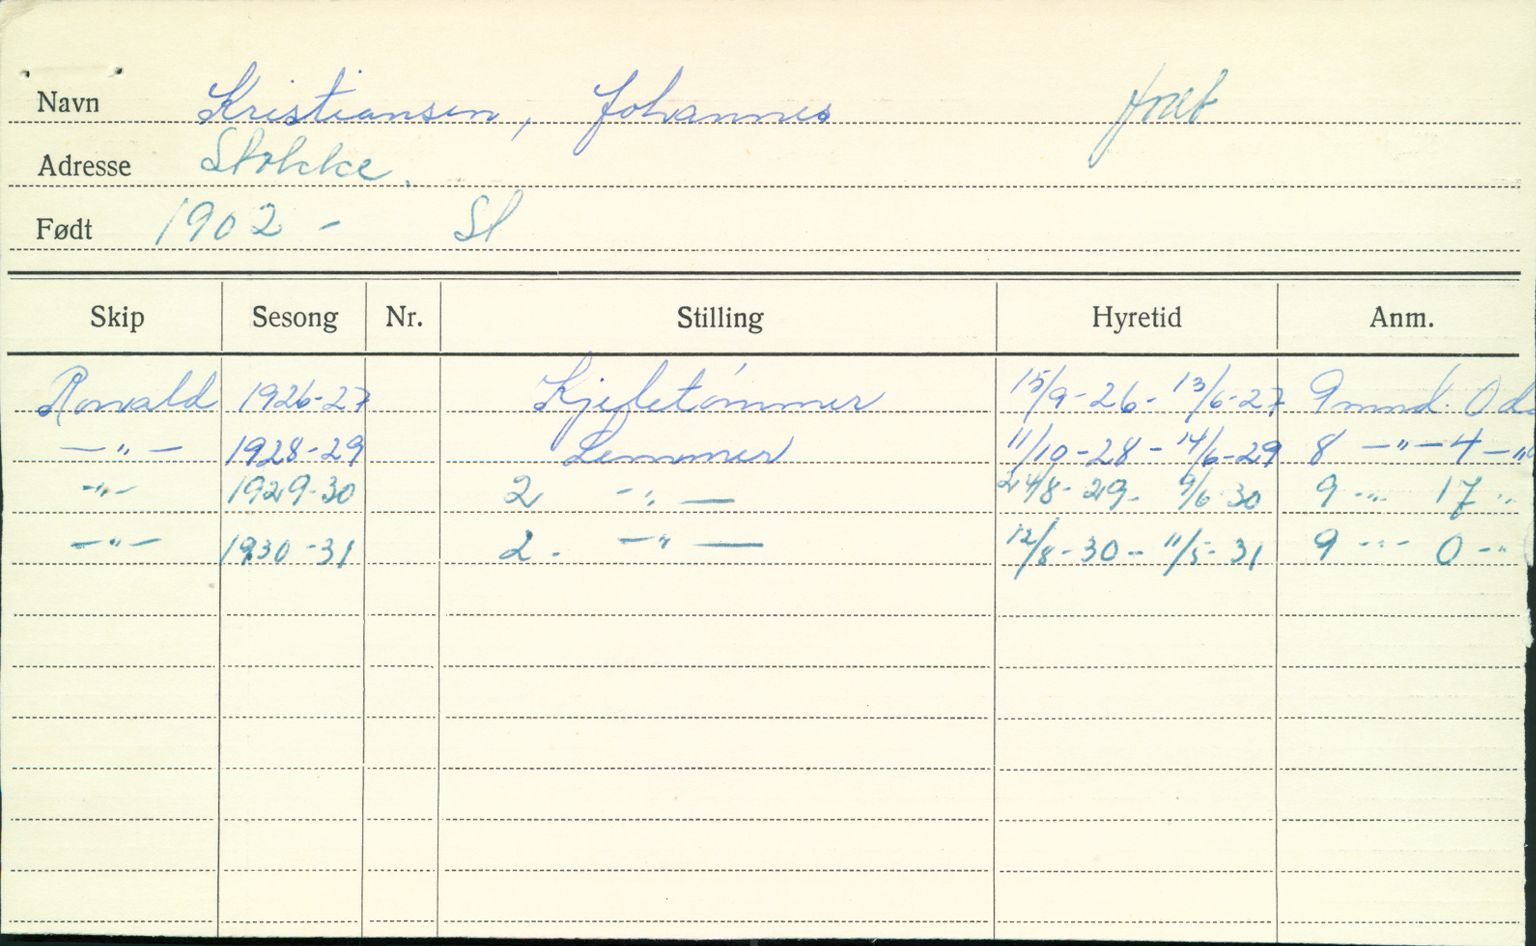 Navn Kristiansen, Johannes
Adresse Stokke.
Født 1902 - St
Skip Sesong Nr. Stilling Hyretid Anm.
Ronald 1926-27 Kjeletømmer 15/9-26- 13/6-27 9 mnd. 0 da
—"— 1928-29 Lemmer 11/10-28 - 14/6-29 8 —"— 4 —"
-"- 1929-30 2 -"— 24/8-29- 9/6-30 9 -"- 17 "
—"— 1930-31 2. —"— 12/8-30- 11/5-31 9 -"- 0 -"